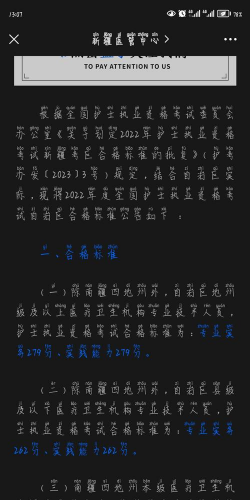 13:07
76%
新疆医管中心
TO PAY ATTENTION TO US
根据全国护士执业资格考试委员会
办公室《关于划定2022年护士执业资格
考试新疆考区合格标准的批复》(护考
办发〔2023〕3号)规定,结合自治区实
际,现将2022年度全国护士执业资格考
试自治区合格标准公告如下:
一、合格标准
(一)除南疆四地州外,自治区地州
级及以上医疗卫生机构专业技术人员,
护士执业资格考试合格标准为:专业实
务279分、实践能力279分。
(二)除南疆四地州外,自治区县级
及以下医疗卫生机构专业技术人员,护
士执业资格考试合格标准为:专业实务
262分、实践能力262分。
(三)南疆四地州本级医疗卫生机